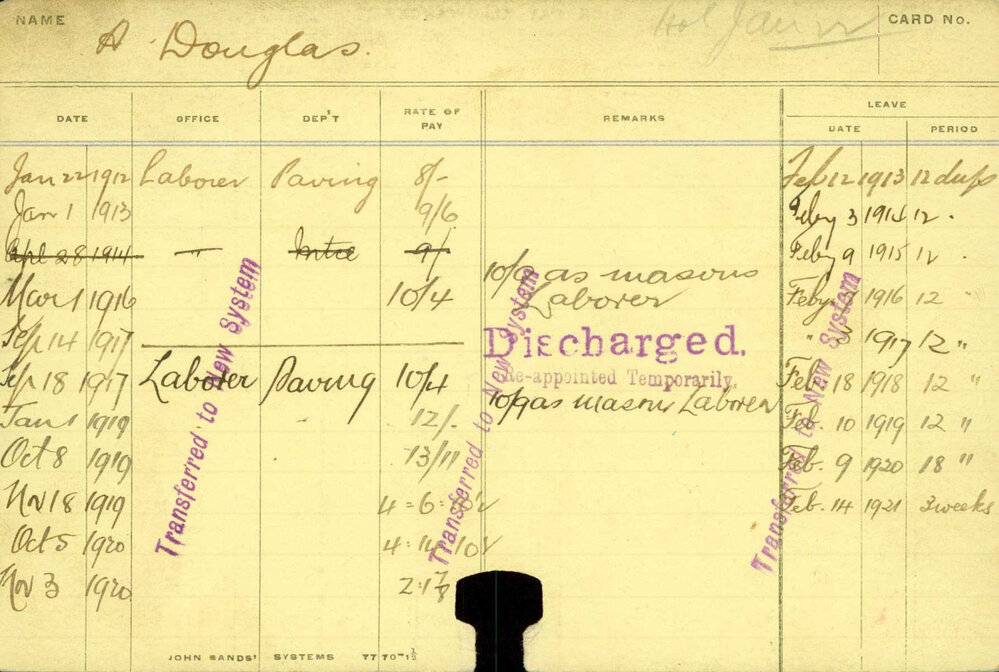 NAME A Douglas. Hol Jan CARD No.
DATE OFFICE DEP'T RATE OF PAY REMARKS LEAVE
DATE PERIOD
Jan 22 1912 Laborer Paving 8/- Feb 12 1913 12 days
Jan 1 1913 9/6 Feby 3 1914 12 .
Apl 28 1914 — 9/ Feby 9 1915 12 .
10/9 as masons
Mar 1 1916 10/4 Laborer Feby 1916 12 "
Sep 14 1917 Discharged. " 5 1917 12 "
Re-appointed Temporarily.
Sep 18 1917 Laborer Paving 10/4 Feb 18 1918 12 "
10/9 as mason Laborer
Jan 1 1919 12/. Feb. 10 1919 12 "
Oct 8 1919 13/11 Feb. 9 1920 18 "
Nov 18 1919 4=6= Feb. 14 1921 3 weeks
Oct 5 1920 4:14:10
Nov 3 1920
Transferred to New System
Transferred to New System
Transferred to New System
JOHN SANDS' SYSTEMS 7770-1½